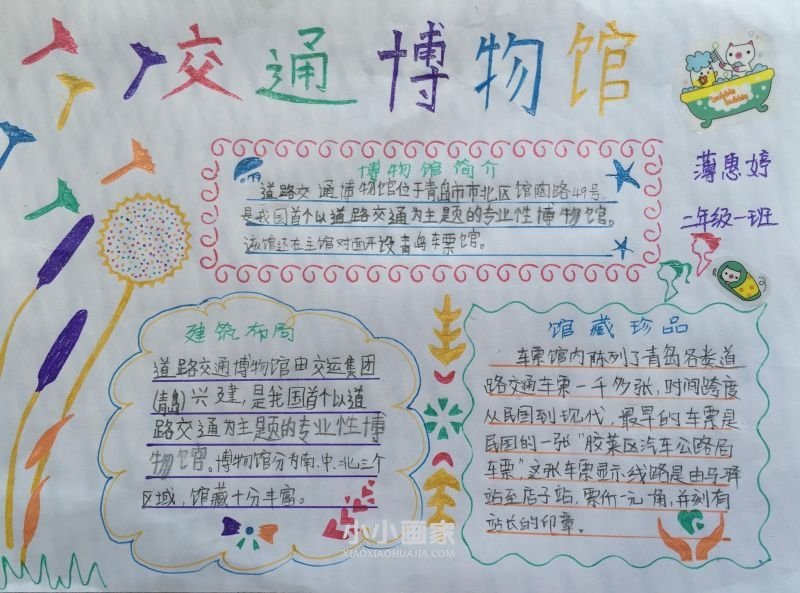 交通博物馆
薄惠婷
二年级一班
博物馆简介
道路交通博物馆位于青岛市市北区馆陶路49号,
是我国首个以道路交通为主题的专业性博物馆。
该馆还在主馆对面开设青岛车票馆。
建筑布局
道路交通博物馆由交运集团
(青岛)兴建,是我国首个以道
路交通为主题的专业性博
物馆。博物馆分为南、中、北三个
区域,馆藏十分丰富。
馆藏珍品
车票馆内陈列了青岛各类道
路交通车票一千多张,时间跨度
从民国到现代,最早的车票是
民国的一张"胶莱区汽车公路局
车票",这张车票显示线路是由马驿
站至店子站,票价一元一角,并刻有
站长的印章。
小小画家
XIAOXIAOHUAJIA.COM